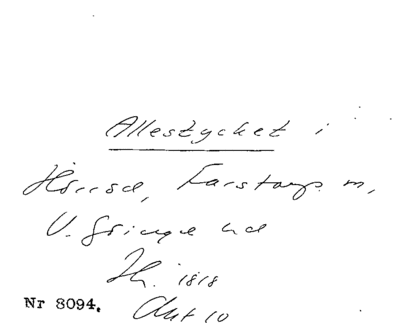 Allestycket i
Hörröd, Färstorps m,
V. Göinge hd
Hi. 1818
Nr 8094. Akt 10